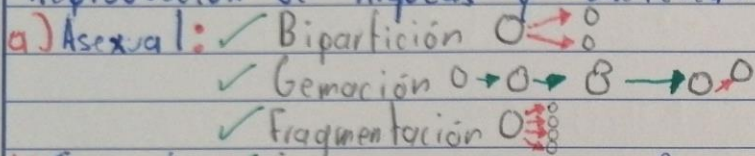 a) Asexual: ✓ Bipartición
✓ Gemación
✓ Fragmentación